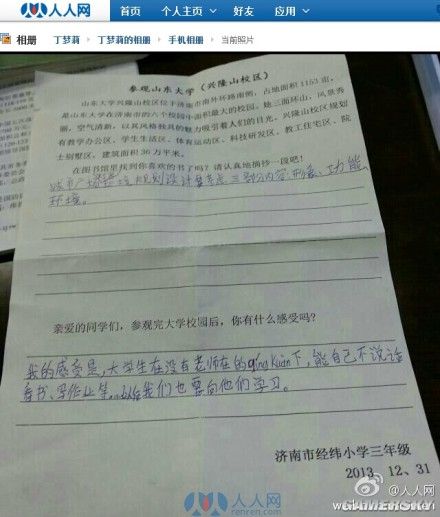 人人网
首页
个人主页
好友
应用
相册
丁梦莉
丁梦莉的相册
手机相册
当前照片
参观山东大学（兴隆山校区）
山东大学兴隆山校区位于济南市南外环路南侧，占地面积1153亩，
山东大学在济南市的六个校园中面积最大的校园。她三面环山，风景秀
丽，空气清新，以其风格独具的魅力吸引着人们的目光。兴隆山校区规划
有教学办公区、学生生活区、体育运动区、科技研发区、教工住宅区、院
士别墅区，建筑面积36万平米。
在图书馆里找到你喜欢的书了吗？请认真地摘抄一段吧！
城市广场 规划设计 考虑三部分内容,形象、功能、
环境。
亲爱的同学们，参观完大学校园后，你有什么感受吗？
我的感受是,大学生在没有老师在的qíng Kuàn下,能自己不说话
看书、写作业等,...以后我们也要向他们学习。
济南市经纬小学三年级
2013. 12、31
人人网
renren.com
@人人网
GAMERSKY